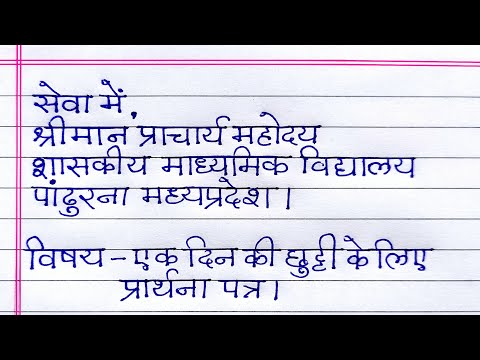 सेवा में,
श्रीमान प्राचार्य महोदय
शासकीय माध्यमिक विद्यालय
पांढुरना मध्यप्रदेश।
विषय - एक दिन की छुट्टी के लिए
प्रार्थना पत्र।